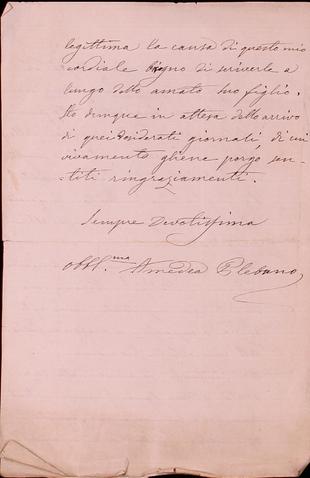 legittima la causa di questo mio
cordiale sogno di scriverle a
lungo dello amato suo figlio.
Sto dunque in attesa dello arrivo
di quei desiderati giornali, di cui
vivamente gliene porgo sen-
-titi ringraziamenti.
Sempre devotissima
Obbl.ma Amedea Plebano